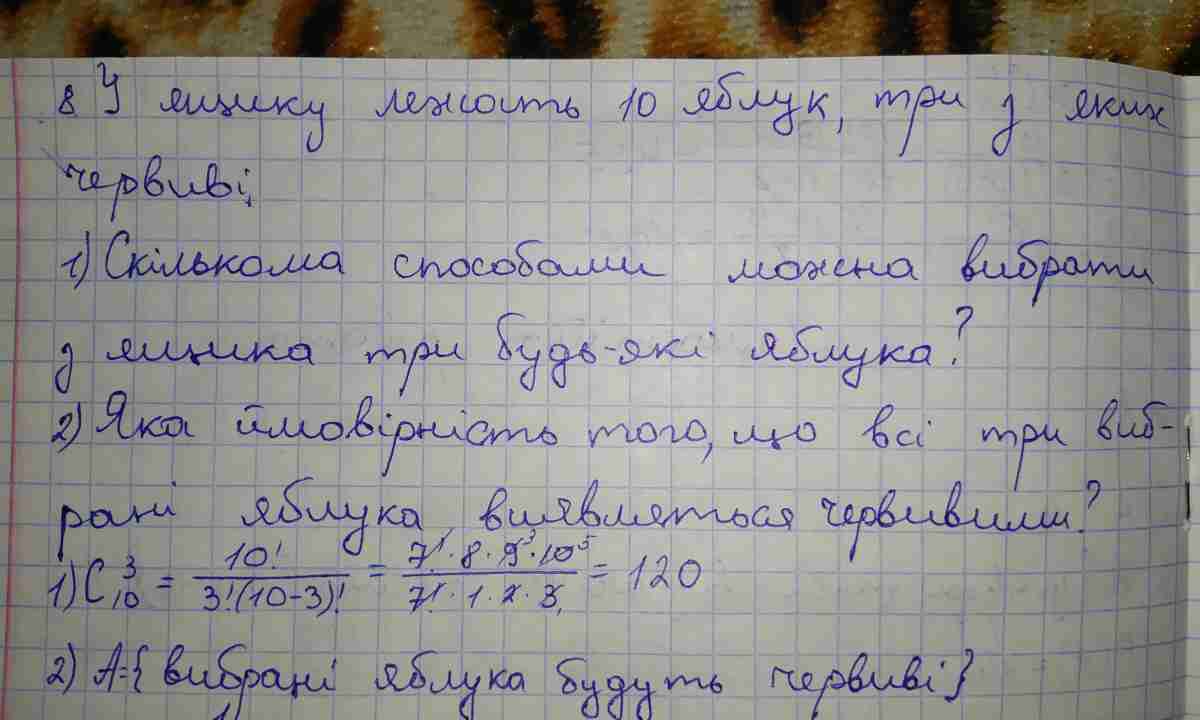 8 У ящику лежать 10 яблук, три з яких
червиві.
1) Скількома способами можна вибрати
з ящика три будь-які яблука?
2) Яка ймовірність того, що всі три виб-
рані яблука виявляться червивими?
1) C₁₀³ = 10! / 3!(10-3)! = 7!·8·9³·10⁵ / 7!·1·2·3 = 120
2) A={вибрані яблука будуть червиві}